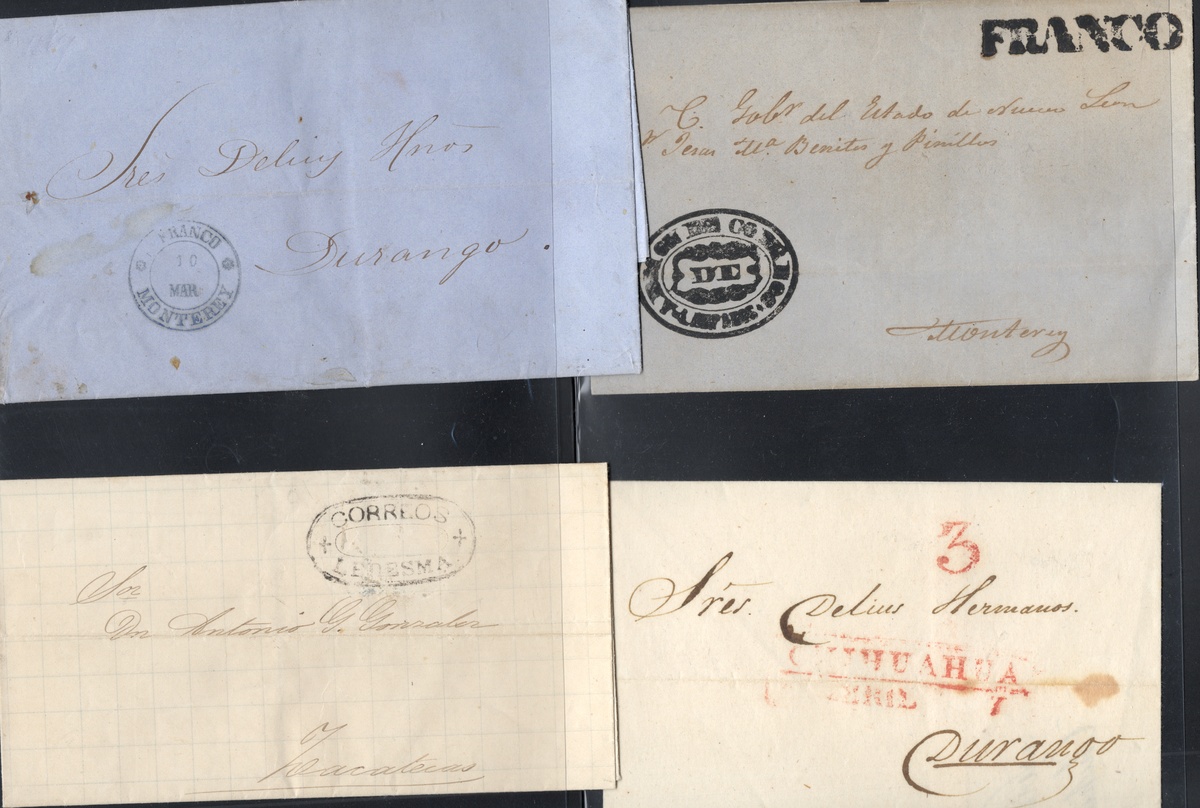 Sres Delius Hnos
Durango.
FRANCO
10
MAR.
MONTEREY
FRANCO
C. Gobr. del Estado de Nuevo Leon
Ma. Benites y Pinillos
DE
Monterey
CORREOS
LEDESMA
Sor
Dn Antonio G. Gonzalez
Zacatecas
3
Sres. Delius Hermanos.
CHIHUAHUA
ABRIL 7
Durango